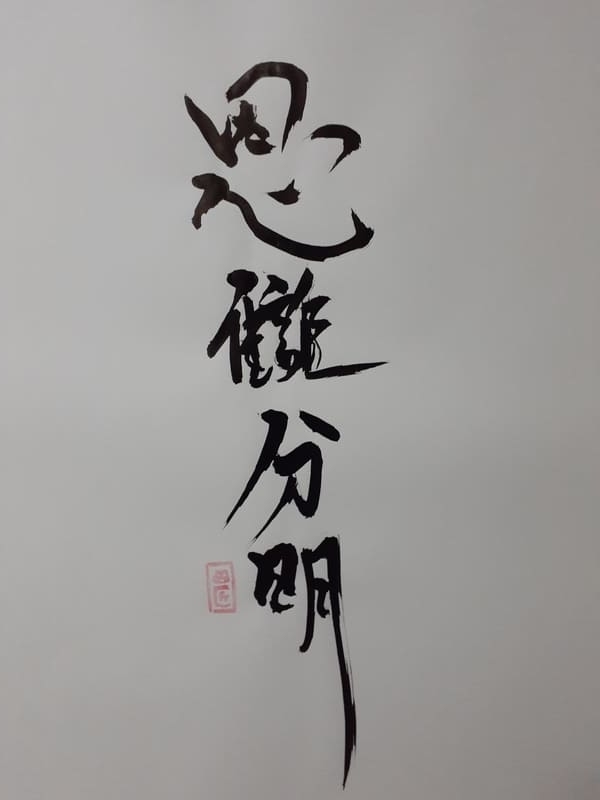 恩讎分明